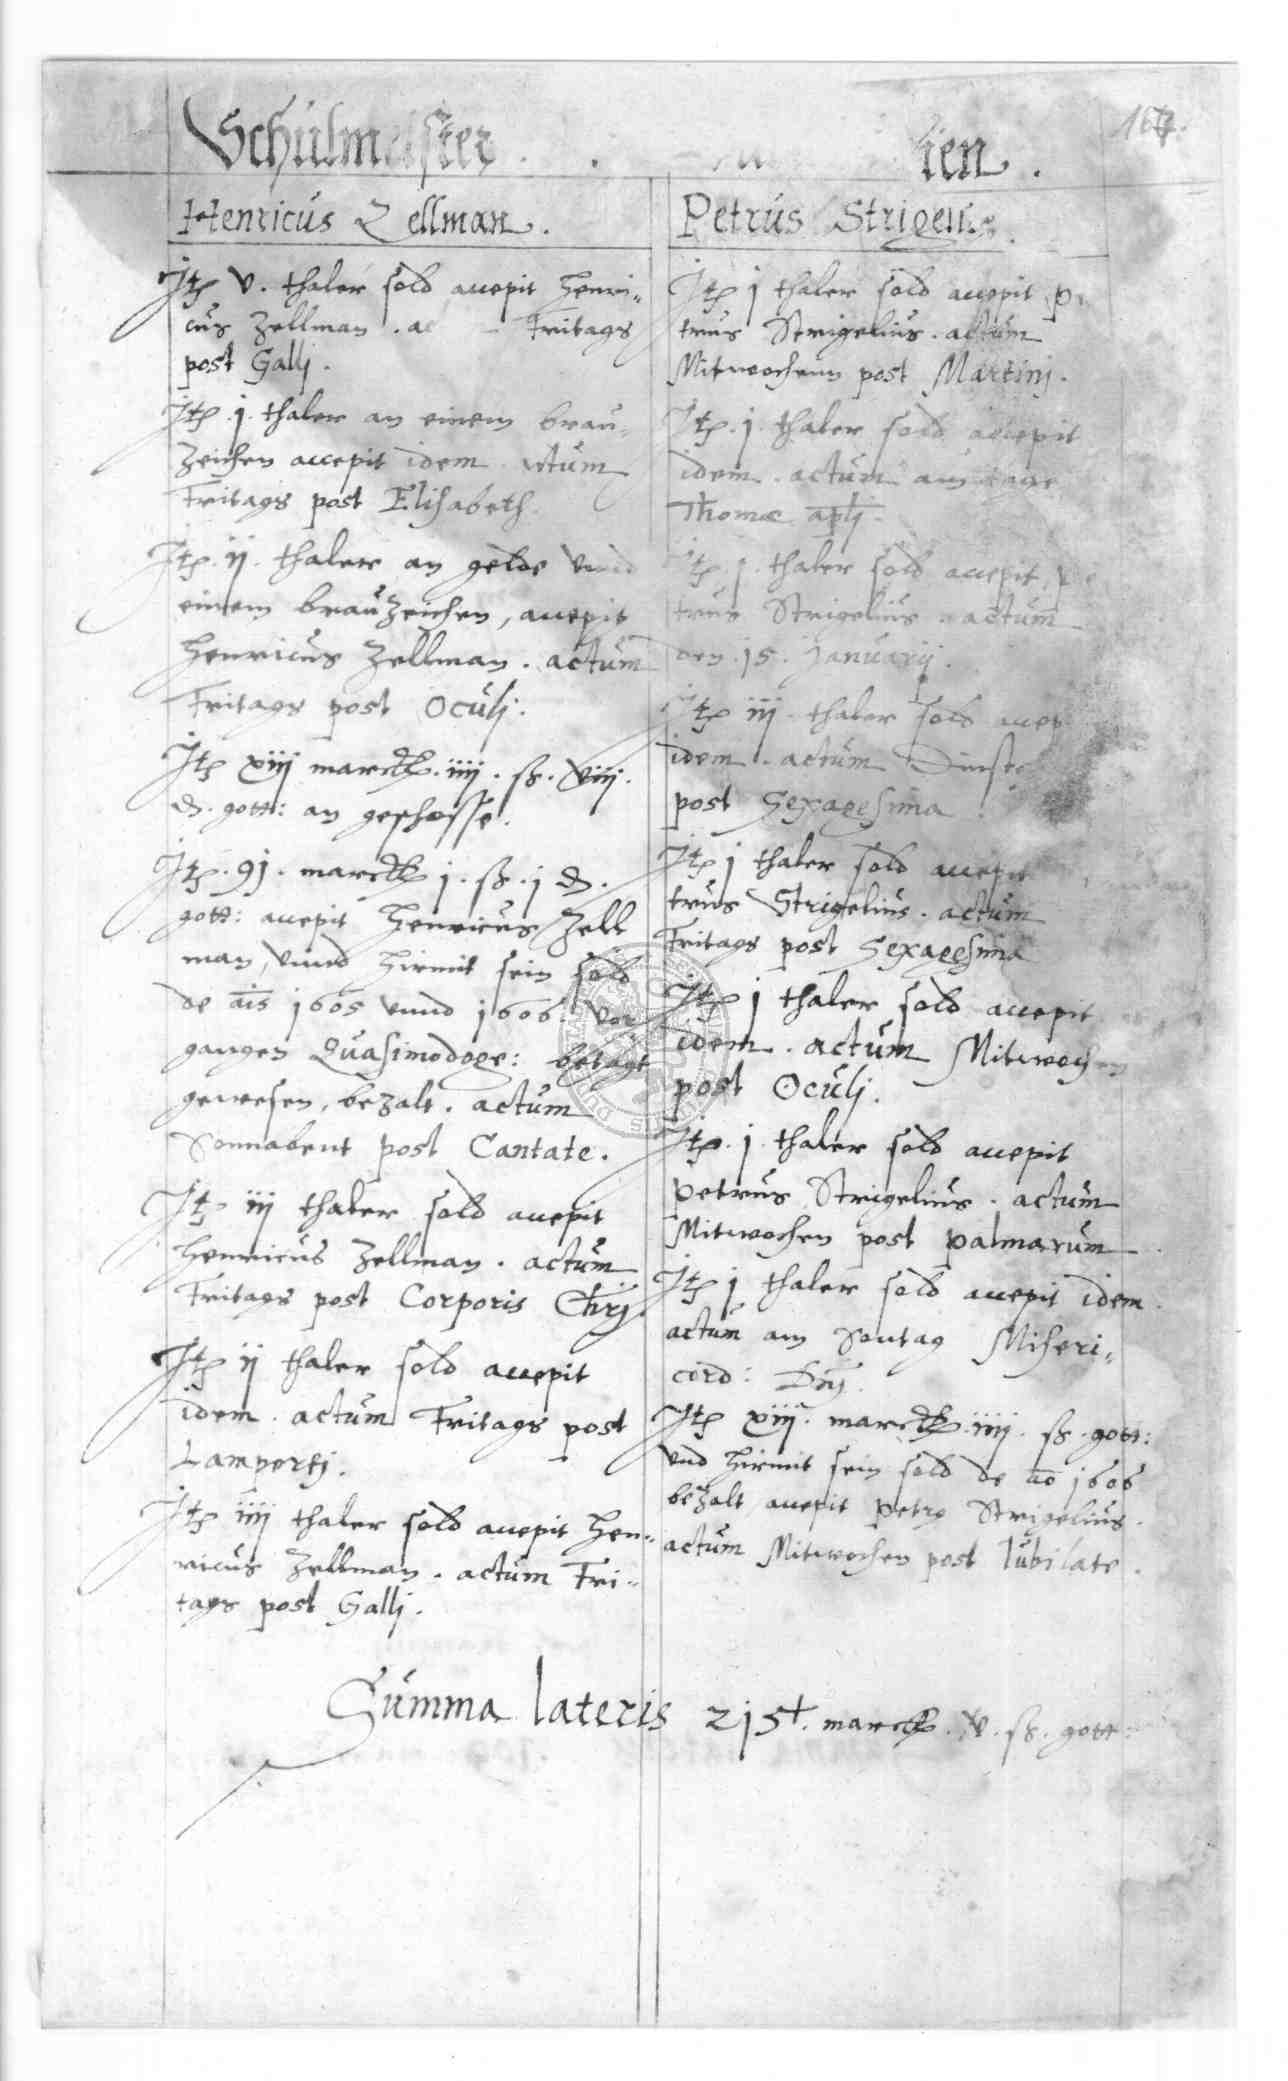 167.
Schulmeister .
Henricus Zellman .
Jtem v . thaler sold accepit Henri„
cus Zellman . Fritags
post Galli .
Jtem . j . thaler an einem brau„
zeichen accepit idem
Fritags post Elisabeth .
Jtem . ij . thaler an gelde vnnd
einem brauzeichen, accepit
Henricus Zellman . actum
Fritags post Oculj .
Jtem xiij marck . iiij . ß . viij .
₰ . gott: an geschosse .
Jtem . 91 . marck j . ß . j ₰ .
gott: accepit Henricus Zell
man, vnnd hirmit sein sold
de a̅i̅s 1605 vnnd 1606 . vor
gangen Quasimodoge: betagt
gewesen, bezalt . actum
Sonnabent post Cantate .
Jtem iij thaler sold accepit
Henricus Zellman . actum
Fritags post Corporis Chrj
Jtem ij thaler sold accepit
idem . actum Fritags post
Lampertj .
Jtem iiij thaler sold accepit Hen„
ricus Zellman . actum Fri„
tags post Gallj .
Petrus Strigelius .
Jtem j thaler sold accepit Pe
trus Strigelius . actum
Mitwochenn post Martinj .
Jtem . j . thaler sold accepit
idem . actum am tage
Thomæ apli .
Jtem . j . thaler sold accepit Pe
trus Strigelius . actum
den . 15 . Januarij .
Jtem iij . thaler sold accep
idem . actum Dinst
post Sexagesima .
Jtem j thaler sold accepit
trus Strigelius . actum
Fritags post Sexagesima
Jtem j thaler sold accepit
idem . actum Mitwochen
post Oculj .
Jtem . j . thaler sold accepit
Petrus Strigelius . actum
Mitwochen post Palmarum
Jtem j thaler sold accepit idem .
actum am Sontag Miseri„
cord: Dnj .
Jtem xiij . marck . iiij . ß . gott:
vnd hirmit sein sold de ao 1606
bezalt accepit Petrus Strigelius .
actum Mitwochen post Iubilate .
Summa lateris 215 . marck . v . ß . gott: